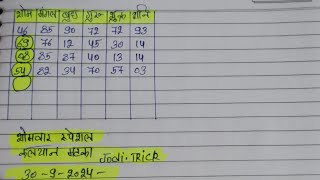 सोम मंगल बुध गुरु शुक्र शनि
46 85 90 72 72 93
69 76 12 45 30 14
68 85 87 40 13 14
54 82 34 70 57 03
सोमवार स्पेशल
कल्याण मटका Jodi. TRICK
30-9-2024-